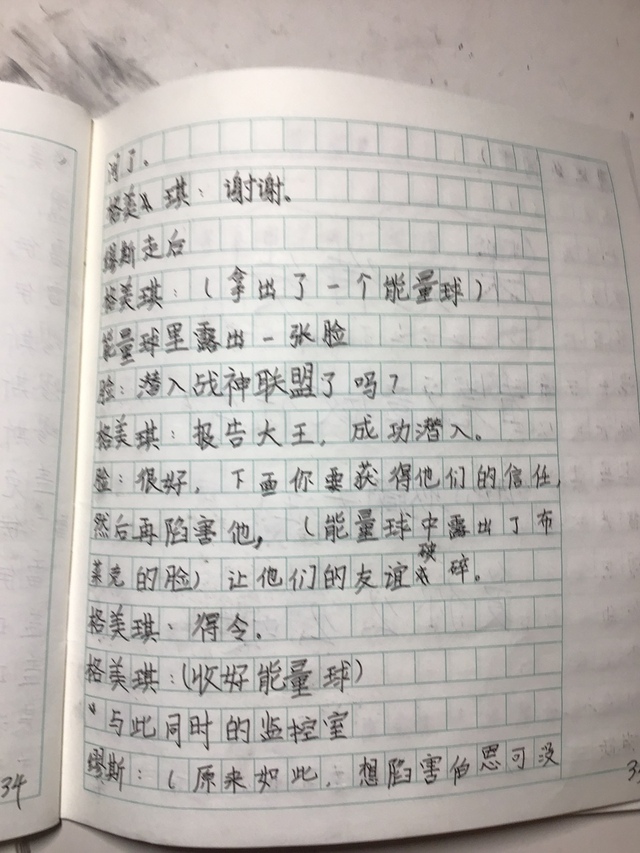 润了。
格美琪：谢谢。
缪斯走后
格美琪：（拿出了一个能量球）
能量球里露出一张脸
脸：潜入战神联盟了吗？
格美琪：报告大王，成功潜入。
脸：很好，下面你要获得他们的信任，
然后再陷害他，（能量球中露出了布
莱克的脸）让他们的友谊破碎。
格美琪：得令。
格美琪：（收好能量球）
与此同时的监控室
缪斯：（原来如此，想陷害伯恩可没
34